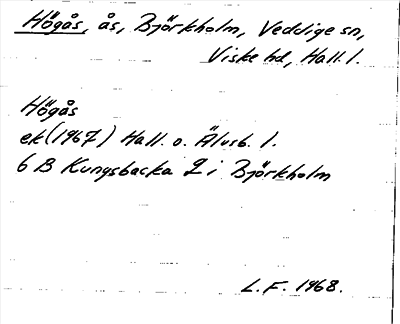 Högås, ås, Björkholm, Veddige sn,
Viske hd, Hall. l.
Högås
ek (1967) Hall. o. Älvsb. l.
6 B Kungsbacka 2 i Björkholm
L. F. 1968.